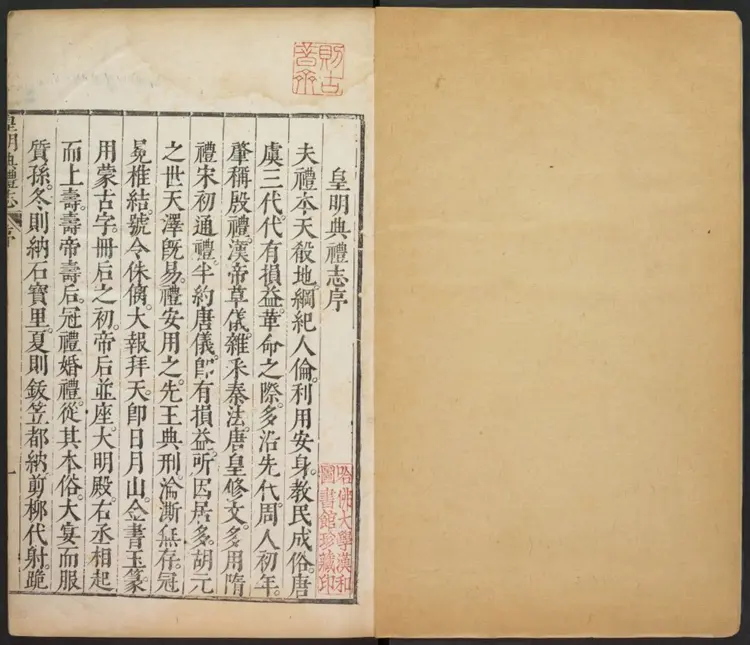 則古
昔齋
皇明典禮志序
夫禮本天殽地。綱紀人倫。利用安身。教民成俗。唐
虞三代。代有損益。革命之際。多沿先代。周人初年。
肇稱殷禮。漢帝草儀。雜采秦法。唐皇修文。多用隋
禮。宋初通禮。半約唐儀。卽有損益。所因居多。胡元
之世。天澤旣易。禮安用之。先王典刑。淪澌無存。冠
冕椎結。號令侏㒧。大報拜天。卽日月山。金書玉篆
用蒙古字。冊后之初。帝后並座。大明殿。右丞相起
而上壽。壽帝壽后。冠禮婚禮。從其本俗。大宴而服
質孫。冬則納石寶里。夏則鈸笠都納。剪柳代射。跪
皇明典禮志 序
一
哈佛大學漢和
圖書館珍藏印